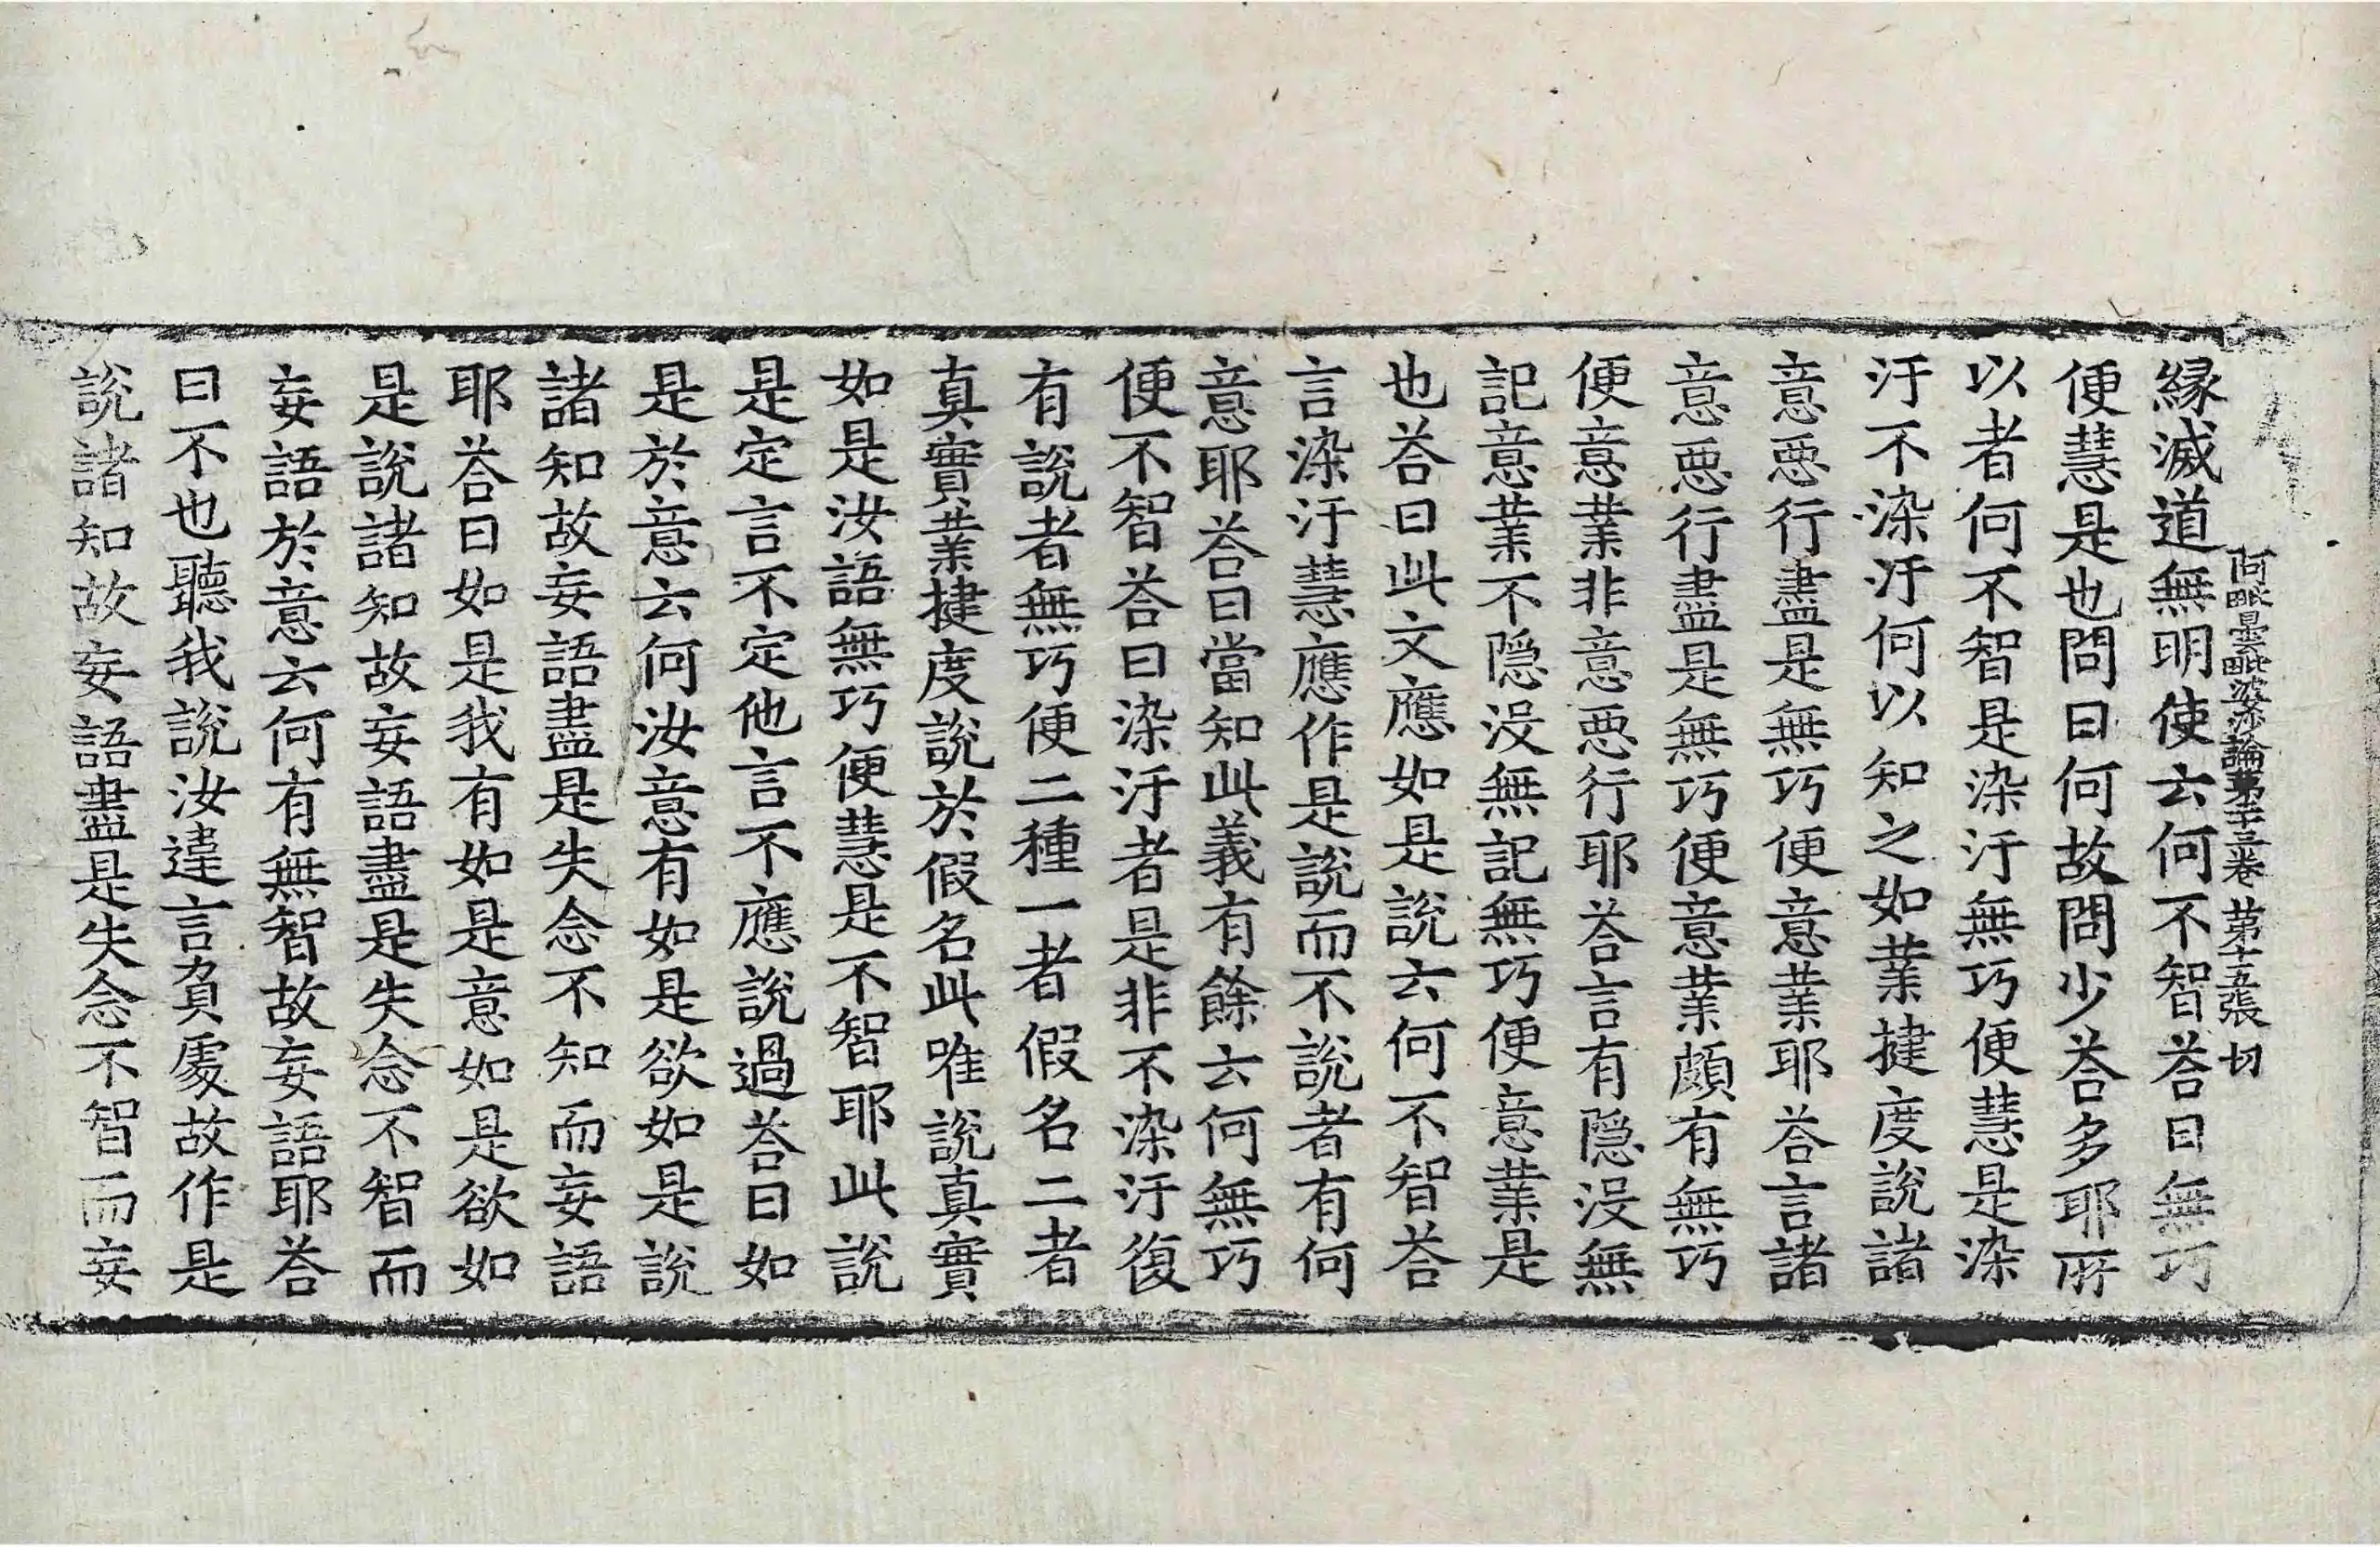 阿毗曇毗婆沙論第十三卷 第十五張 切
緣滅道無明使云何不智荅曰無巧
便慧是也問曰何故問少荅多耶所
以者何不智是染汙無巧便慧是染
汙不染汙何以知之如業揵度說諸
意惡行盡是無巧便意業耶荅言諸
意惡行盡是無巧便意業頗有無巧
便意業非意惡行耶荅言有隱沒無
記意業不隱沒無記無巧便意業是
也荅曰此文應如是說云何不智荅
言染汙慧應作是說而不說者有何
意耶荅曰當知此義有餘云何無巧
便不智荅曰染汙者是非不染汙復
有說者無巧便二種一者假名二者
真實業揵度說於假名此唯說真實
如是汝語無巧便慧是不智耶此說
是定言不定他言不應說過荅曰如
是於意云何汝意有如是欲如是說
諸知故妄語盡是失念不知而妄語
耶荅曰如是我有如是意如是欲如
是說諸知故妄語盡是失念不智而
妄語於意云何有無智故妄語耶荅
曰不也聽我說汝違言負處故作是
說諸知故妄語盡是失念不智而妄